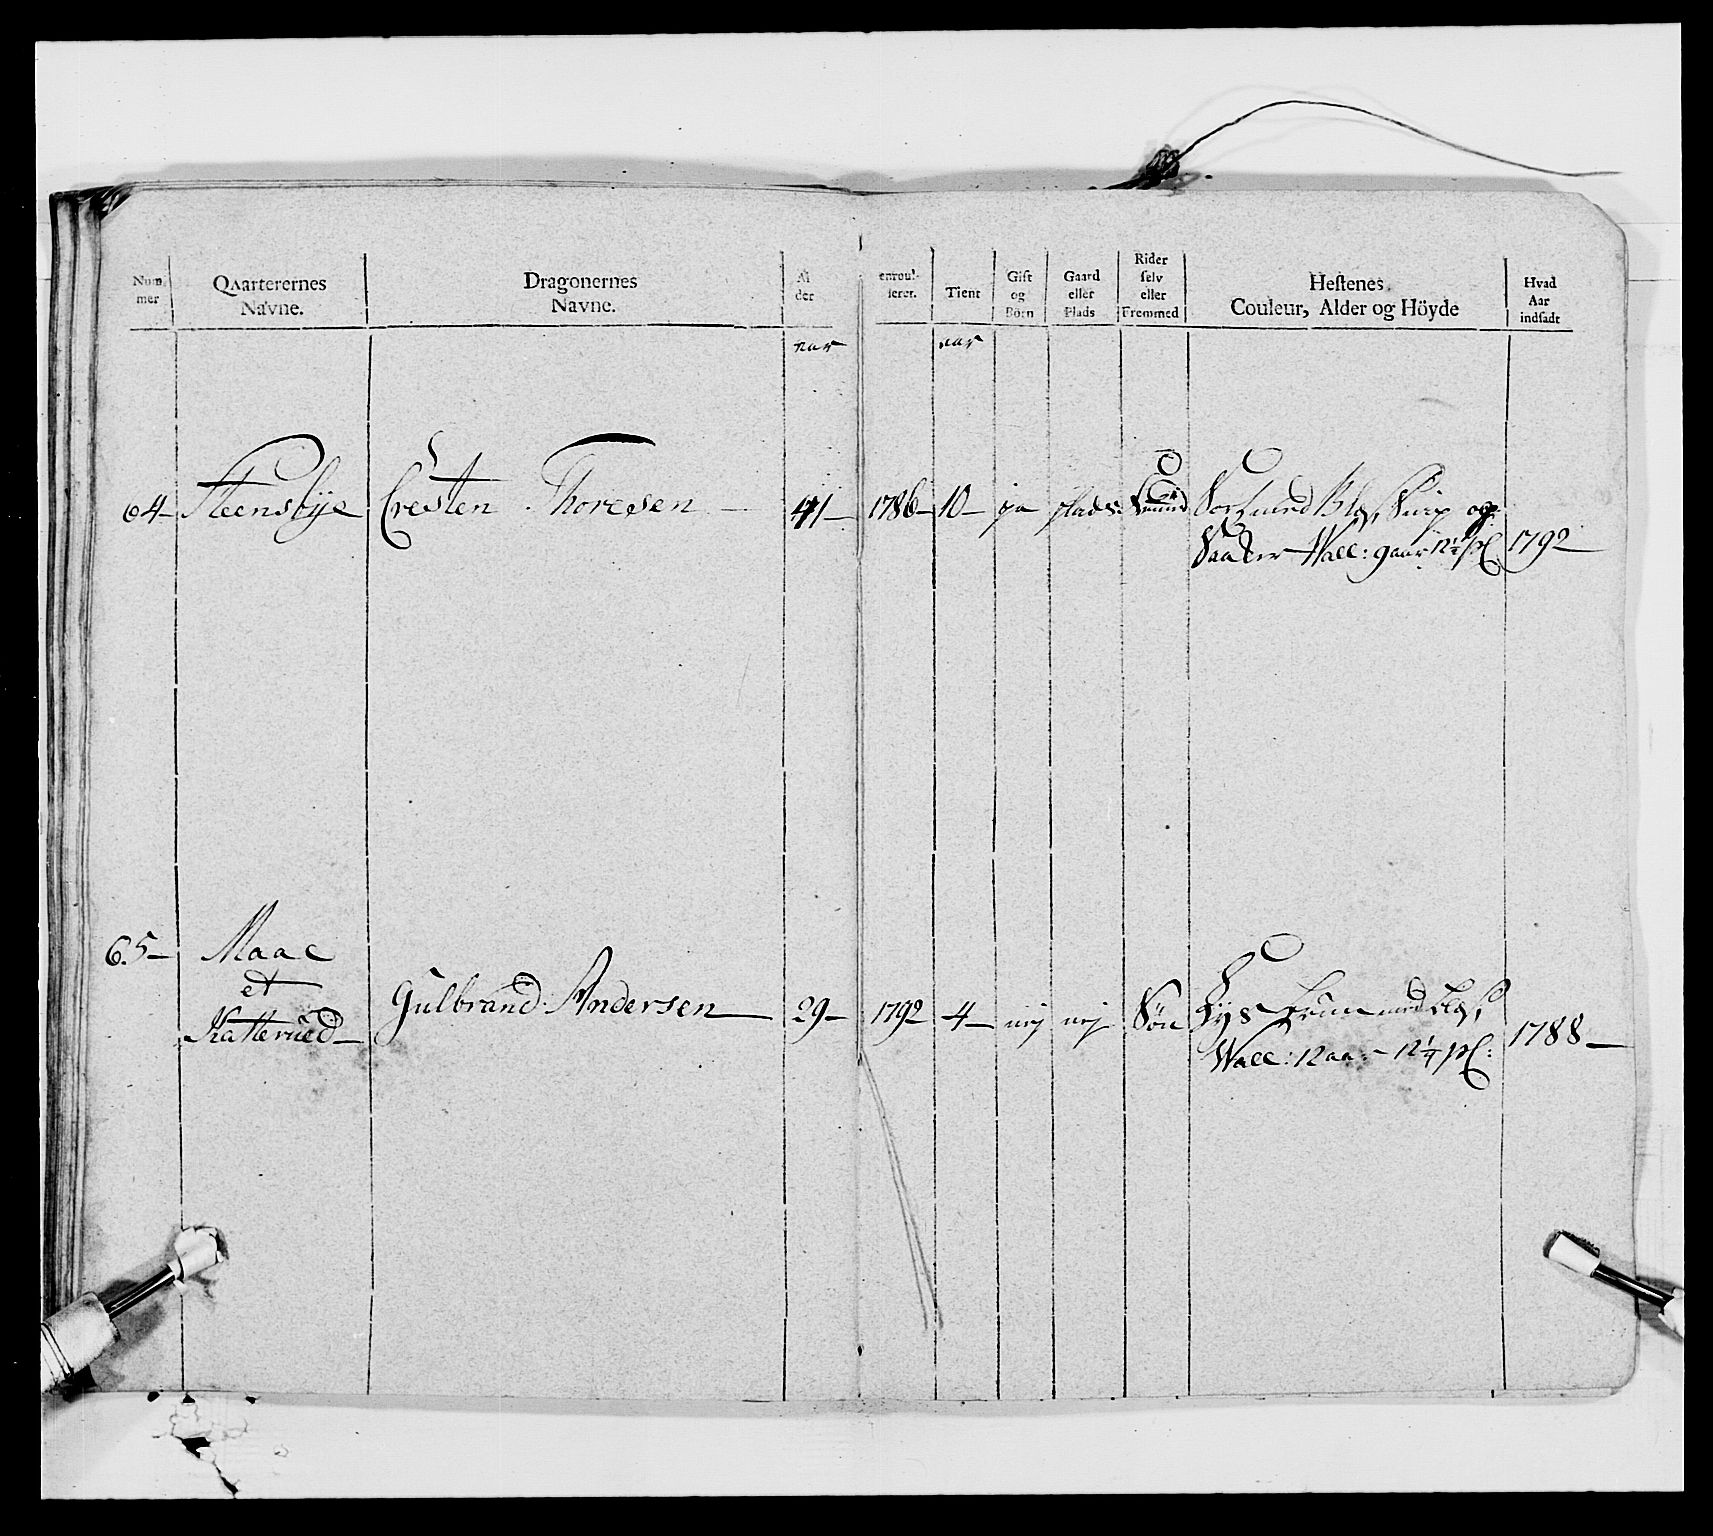 Num-
mer
Qvarterernes
Navne.
Dragonernes
Navne.
Al
der
enroul-
lerer.
Tient
Gift
og
Börn
Gaard
eller
Plads
Rider
selv
eller
Fremmed
Hestenes
Couleur, Alder og Höyde
Hvad
Aar
indsadt
aar aar
64- Steensbye Cresten Thoresen - 41- 1786- 10- ja plads: Fremmed Sort med Blis, Snip og
Wall: 9 aar 12½ 1792-
65- Maae
et
Katterued- Gulbrand Andersen- 29- 1792 4- nej nej Søn Lys bruun med blis,
Wall: 12 aar- 12¼ 1788-